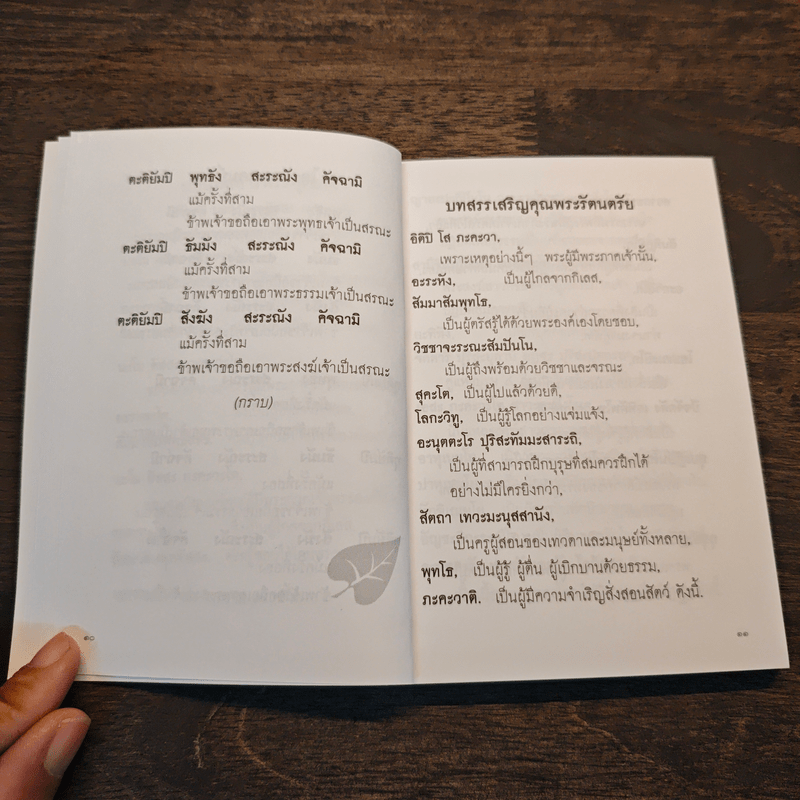 ตะติยัมปิ พุทธัง สะระณัง คัจฉามิ
แม้ครั้งที่สาม
ข้าพเจ้าขอถือเอาพระพุทธเจ้าเป็นสรณะ
ตะติยัมปิ ธัมมัง สะระณัง คัจฉามิ
แม้ครั้งที่สาม
ข้าพเจ้าขอถือเอาพระธรรมเจ้าเป็นสรณะ
ตะติยัมปิ สังฆัง สะระณัง คัจฉามิ
แม้ครั้งที่สาม
ข้าพเจ้าขอถือเอาพระสงฆ์เจ้าเป็นสรณะ
(กราบ)
๑๐
บทสรรเสริญคุณพระรัตนตรัย
อิติปิ โส ภะคะวา,
เพราะเหตุอย่างนี้ๆ พระผู้มีพระภาคเจ้านั้น,
อะระหัง, เป็นผู้ไกลจากกิเลส,
สัมมาสัมพุทโธ,
เป็นผู้ตรัสรู้ได้ด้วยพระองค์เองโดยชอบ,
วิชชาจะระณะสัมปันโน,
เป็นผู้ถึงพร้อมด้วยวิชชาและจรณะ
สุคะโต, เป็นผู้ไปแล้วด้วยดี,
โลกะวิทู, เป็นผู้รู้โลกอย่างแจ่มแจ้ง,
อะนุตตะโร ปุริสะทัมมะสาระถิ,
เป็นผู้ที่สามารถฝึกบุรุษที่สมควรฝึกได้
อย่างไม่มีใครยิ่งกว่า,
สัตถา เทวะมะนุสสานัง,
เป็นครูผู้สอนของเทวดาและมนุษย์ทั้งหลาย,
พุทโธ, เป็นผู้รู้ ผู้ตื่น ผู้เบิกบานด้วยธรรม,
ภะคะวาติ. เป็นผู้มีความจำเริญสั่งสอนสัตว์ ดังนี้.
๑๑